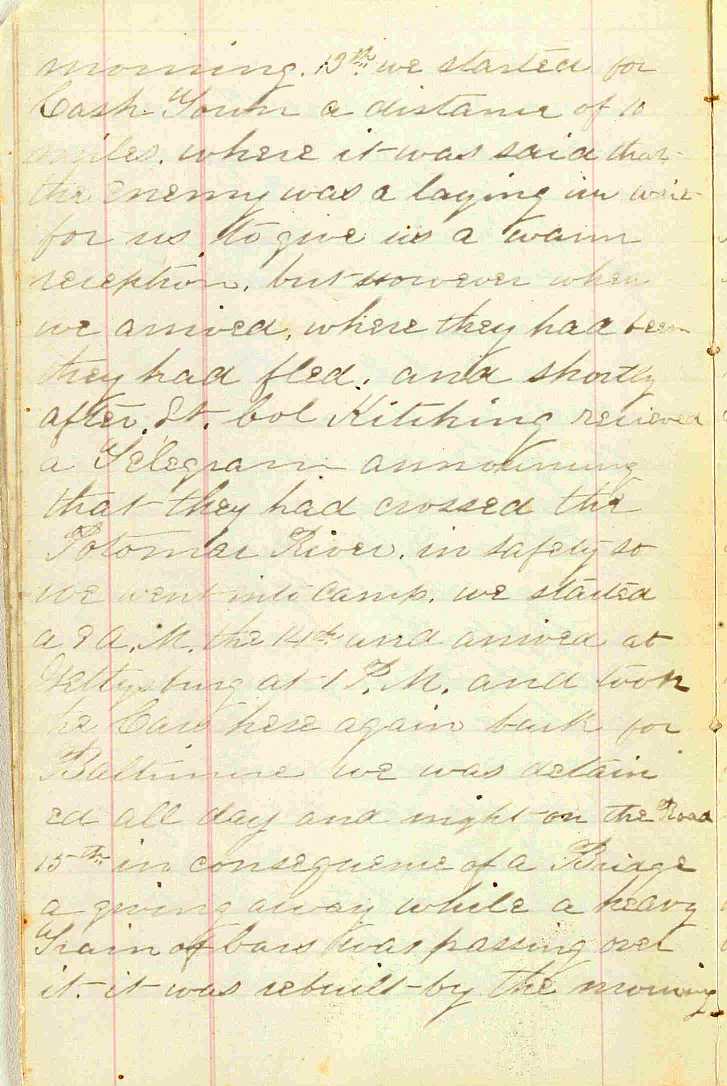 morning. 13th we started for
Cash Town a distance of 10
miles. where it was said that
the enemy was a laying in wait
for us to give us a warm
reception. but however when
we arrived, where they had been
they had fled. and shortly
after. Lt. Col Kitching recieved
a Telegram announcing
that they had crossed the
Potomac River. in safety so
we went into Camp. we started
a 8 A. M. the 14th and arrived at
Gettysburg at 1 P. M. and took
the Cars here again back for
Baltimore we was detain
ed all day and night on the Road
15th in consequence of a Bridge
a giving away while a heavy
Train of Cars was passing over
it. it was rebuilt by the morning